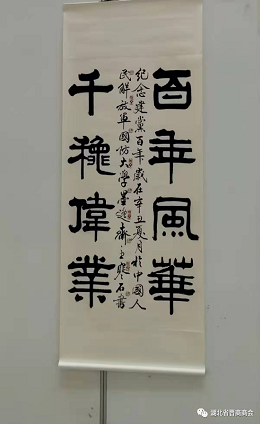 百年風華
紀念建黨百年歲在辛丑夏月於中國人
民解放軍國防大學墨逸齋主寒石書
千穐偉業
湖北省晋商商会